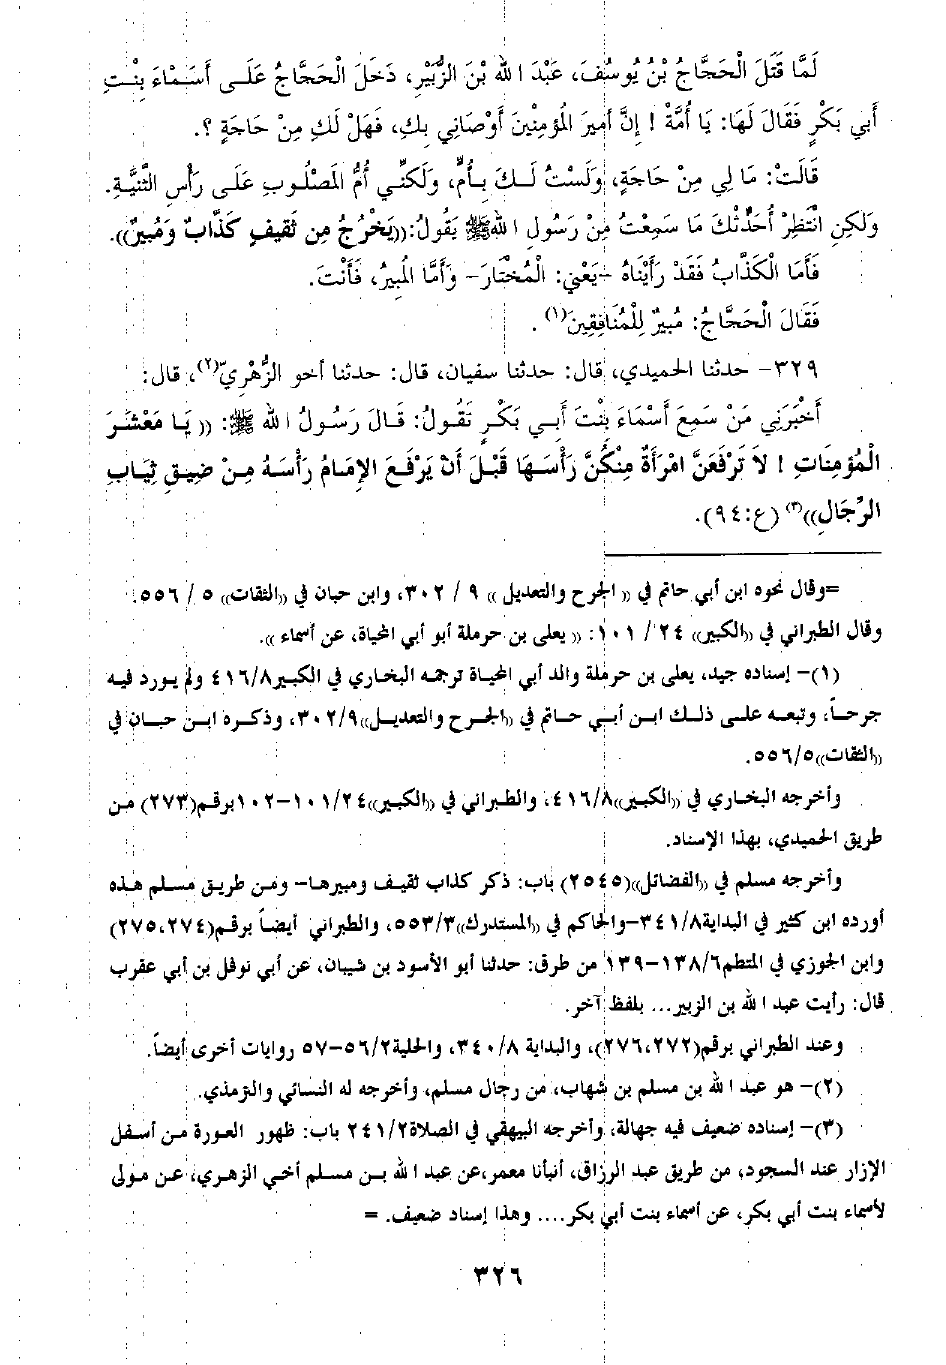 لَمَّا قَتَلَ الْحَجَّاجُ بْنُ يُوسُفَ، عَبْدَ اللهِ بْنَ الزُّبَيْرِ، دَخَلَ الْحَجَّاجُ عَلَى أَسْمَاءَ بِنْتِ
أَبِي بَكْرٍ فَقَالَ لَهَا: يَا أُمَّهْ ! إِنَّ أَمِيرَ الْمُؤمِنْينَ أَوْصَانِي بِكِ، فَهَلْ لَكِ مِنْ حَاجَةٍ ؟.
قَالَتْ: مَا لِي مِنْ حَاجَةٍ، وَلَسْتُ لَكَ بِأُمٍّ، وَلَكنِّي أُمُّ الْمَصْلُوبِ عَلَى رَأْسِ الثَّنِيَّةِ.
وَلكِنِ انْتَظِرْ أُحَدِّثْكَ مَا سَمِعْتُ مِنْ رَسُولِ اللهِ ﷺ يَقُولُ: ((يَخْرُجُ مِن ثَقِيفٍ كَذَّابٌ وَمُبِيرٌ)).
فَأَمَا الْكَذَّابُ فَقَدْ رَأَيْنَاهُ -يَعْنِي: الْمُخْتَارَ- وَأَمَّا الْمُبِيرُ، فَأَنْتَ.
فَقَالَ الْحَجَّاجُ: مُبِيرٌ لِلْمُنَافِقِينَ(١) .
٣٢٩- حدثنا الحميدي، قال: حدثنا سفيان، قال: حدثنا أخو الزُّهْرِيّ(٢)، قال:
أَخْبَرَنِي مَنْ سَمِعَ أَسْمَاءَ بِنْتَ أَبِي بَكْرٍ تَقُولُ: قَالَ رَسُولُ اللهِ ﷺ: (( يَا مَعْشَرَ
الْمُؤمِنَاتِ ! لاَ تَرْفَعَنَّ امْرَأَةٌ مِنْكُنَّ رَأْسَهَا قَبْلَ أَنْ يَرْفَعَ الإِمَامُ رَأْسَهُ مِنْ ضِيقِ ثِيَابِ
الرِّجَالِ))(٣) (ع:٩٤).
=وقال نحوه ابن أبي حاتم في (( الجرح والتعديل )) ٩ / ٣٠٢، وابن حبان في ((الثقات)) ٥ / ٥٥٦.
وقال الطبراني في ((الكبير)) ٢٤/ ١٠١: (( يعلى بن حرملة أبو أبي المحياة، عن أسماء )).
(١)- إسناده جيد، يعلى بن حرملة والد أبي المحياة ترجمه البخاري في الكبير٤١٦/٨ ولم يورد فيه
جرحاً، وتبعه على ذلك ابن أبي حاتم في ((الجرح والتعديل))٣٠٢/٩، وذكره ابن حبان في
((الثقات))٥٥٦/٥.
وأخرجه البخاري في ((الكبير))٤١٦/٨، والطبراني في ((الكبير))١٠١/٢٤-١٠٢برقم(٢٧٣) من
طريق الحميدي، بهذا الإسناد.
وأخرجه مسلم في ((الفضائل))(٢٥٤٥) باب: ذكر كذاب ثقيف ومبيرها- ومن طريق مسلم هذه
أورده ابن كثير في البداية٣٤١/٨-والحاكم في ((المستدرك))٥٥٣/٣، والطبراني أيضاً برقم(٢٧٥،٢٧٤)
وابن الجوزي في المتظم١٣٨/٦-١٣٩ من طرق: حدثنا أبو الأسود بن شيبان، عن أبي نوفل بن أبي عقرب
قال: رأيت عبد الله بن الزبير... بلفظ آخر.
وعند الطبراني برقم(٢٧٦،٢٧٢)، والبداية ٣٤٠/٨، والحلية٥٦/٢-٥٧ روايات أخرى أيضاً.
(٢)- هو عبد الله بن مسلم بن شهاب، من رجال مسلم، وأخرجه له النسائي والترمذي.
(٣)- إسناده ضعيف فيه جهالة، وأخرجه البيهقي في الصلاة٢٤١/٢ باب: ظهور العورة من أسفل
الإزار عند السجود، من طريق عبد الرزاق، أنبأنا معمر،عن عبد الله بن مسلم أخي الزهري، عن مولى
لأسماء بنت أبي بكر، عن أسماء بنت أبي بكر.... وهذا إسناد ضعيف. =
٣٢٦